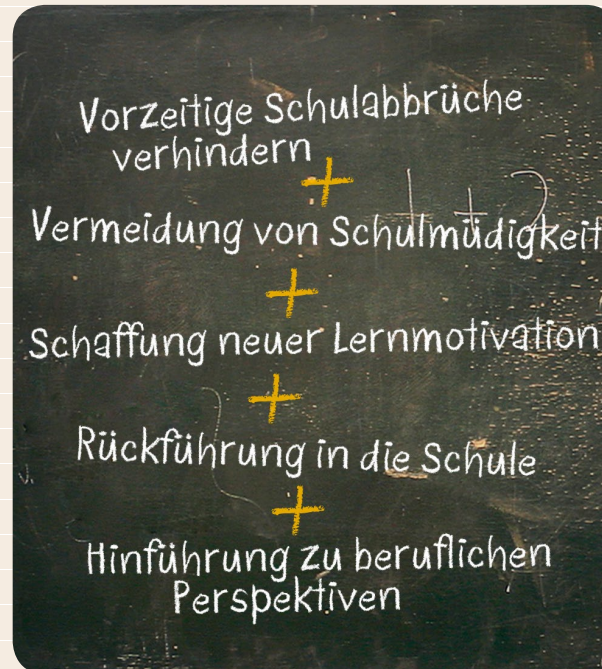 Vorzeitige Schulabbrüche
verhindern
+
Vermeidung von Schulmüdigkeit
+
Schaffung neuer Lernmotivation
+
Rückführung in die Schule
+
Hinführung zu beruflichen
Perspektiven